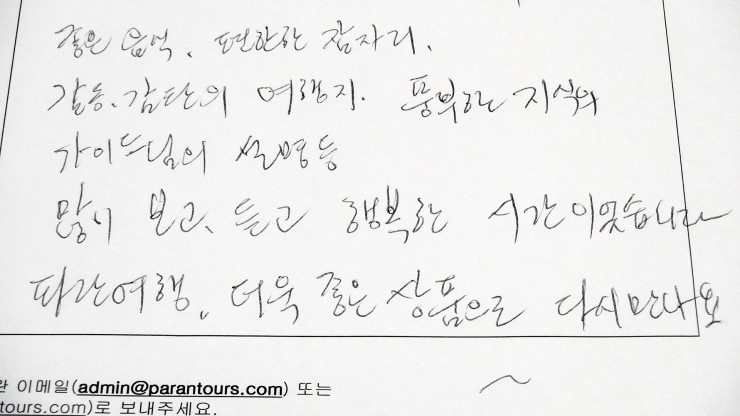 좋은 음식, 편안한 잠자리.
감동.감탄의 여행지. 풍부한 지식의
가이드님의 설명등
많이 보고, 듣고 행복한 시간이었습니다
파란여행, 더욱 좋은 상품으로 다시만나요
~
이메일(admin@parantours.com) 또는
tours.com)로 보내주세요.